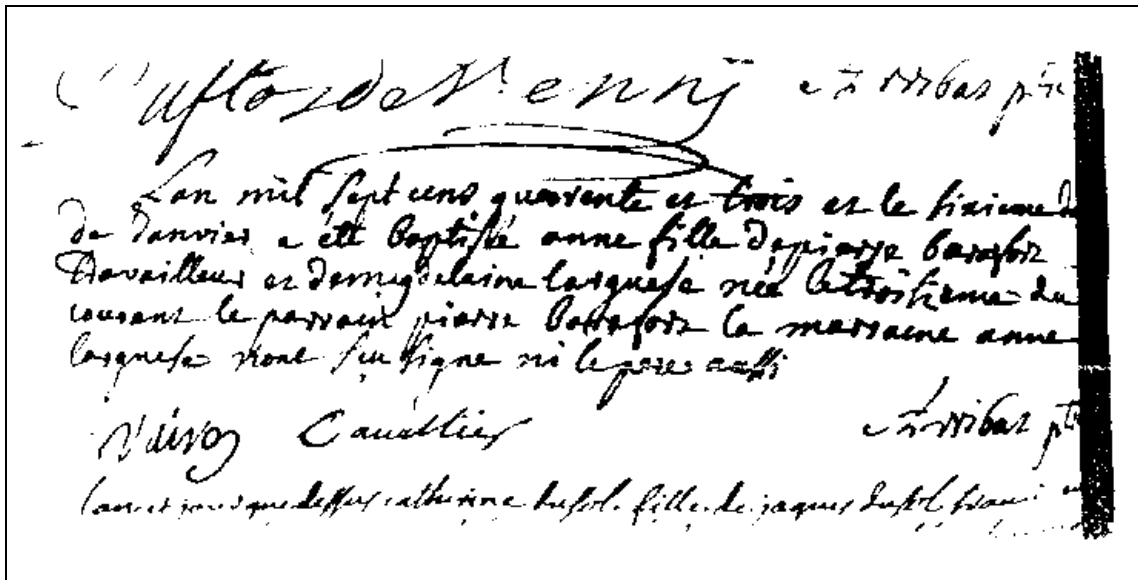 Arribat ptre
Lan mil sept cens quarente et trois et le sixieme de
de Janvier a été Baptisée anne fille de piarre barafort
travailleur et de magdelaine larguese née le troisieme du
courant le parrain piarre Barrafort la marraine anne
larguese nont seu signe ni le pere aussi
Cauallier Arribat ptre
lan et jour que dessus catherine dussol fille de jaques dussol